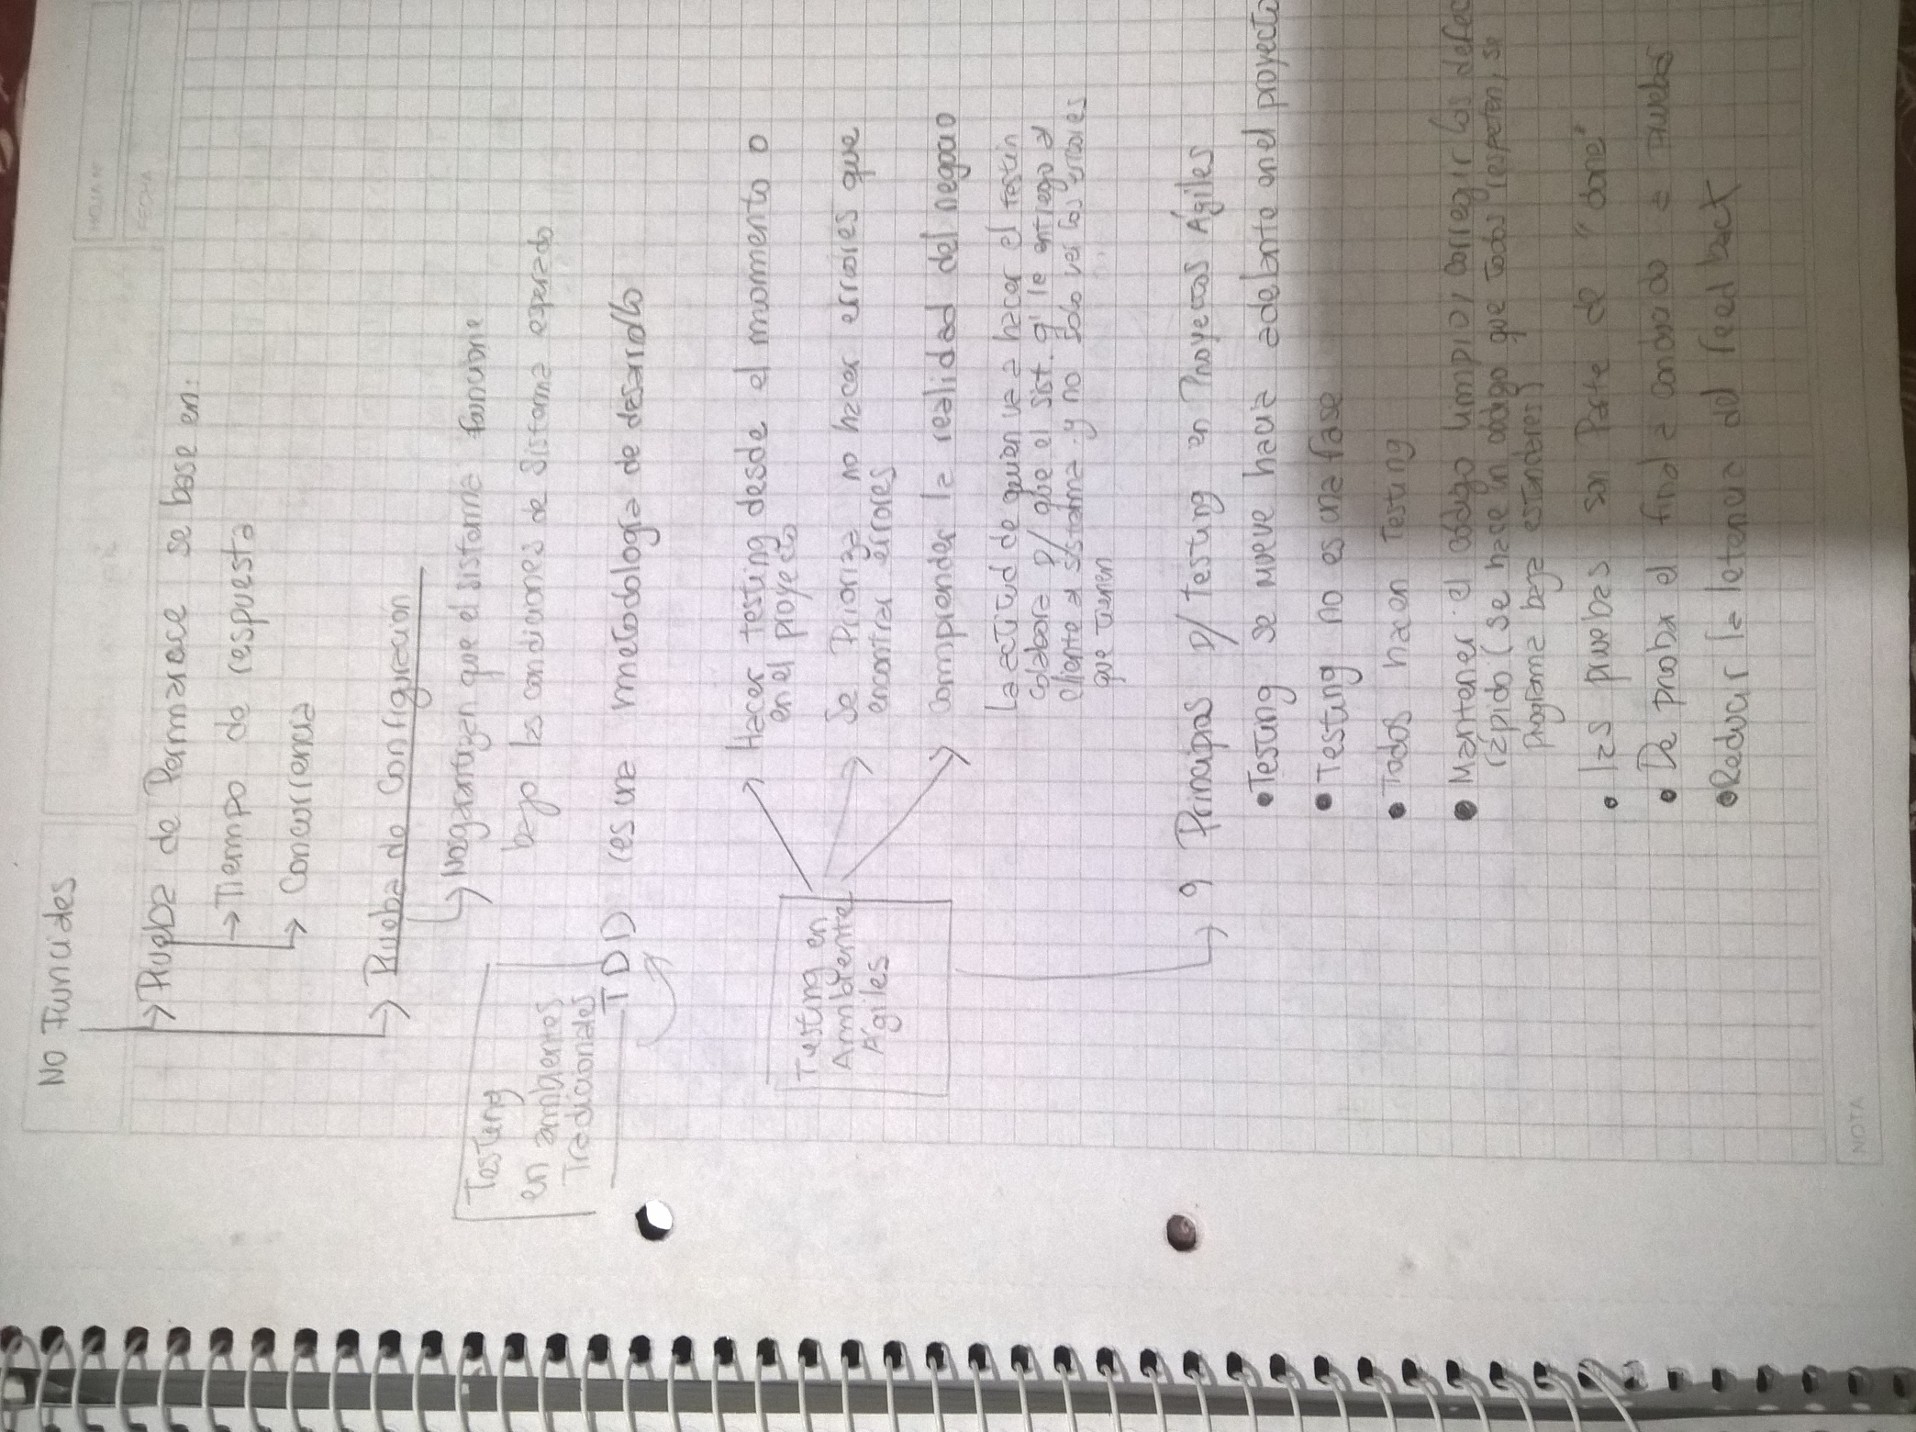 No Funcioles
HOJA Nº
FECHA
→ Prueba de Permarece se base en:
→ Tiempo de respuesta
→ Concurrencia
→ Prueba de Configuracion
→ Nos garantizan que el sistema funcione
bajo las condiciones de sistema esperado
Testing
en ambientes
Tradicionales
TDD (es una metodología de desarrollo
→ Hacer testing desde el momento 0
en el proyecto
Testing en
Ambiente
Ágiles
→ Se Prioriza no hacer errores que
encontrar errores
→ comprender la realidad del negocio
La actitud de quien va a hacer el testin
colabora p/ que el sist. q' le entrego al
cliente el sistema y no solo ver los errores
que tienen
→ 9 Principios p/ testing en Proyectos Ágiles
• Testing se mueve hacia adelante en el proyecto
• Testing no es una fase
• Todos hacen Testing
• Mantener el código limpio, corregir los defec
rápido (se hace un código que todos respeten, se
programa baja estandares)
• las pruebas son Parte de "done"
• De probar el final a conducido a Pruebas
• Reducir la latencia del feed back
NOTA